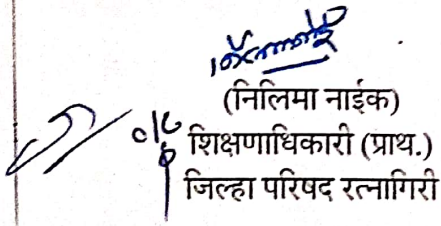 (निलिमा नाईक)
शिक्षणाधिकारी (प्राथ.)
जिल्हा परिषद रत्नागिरी